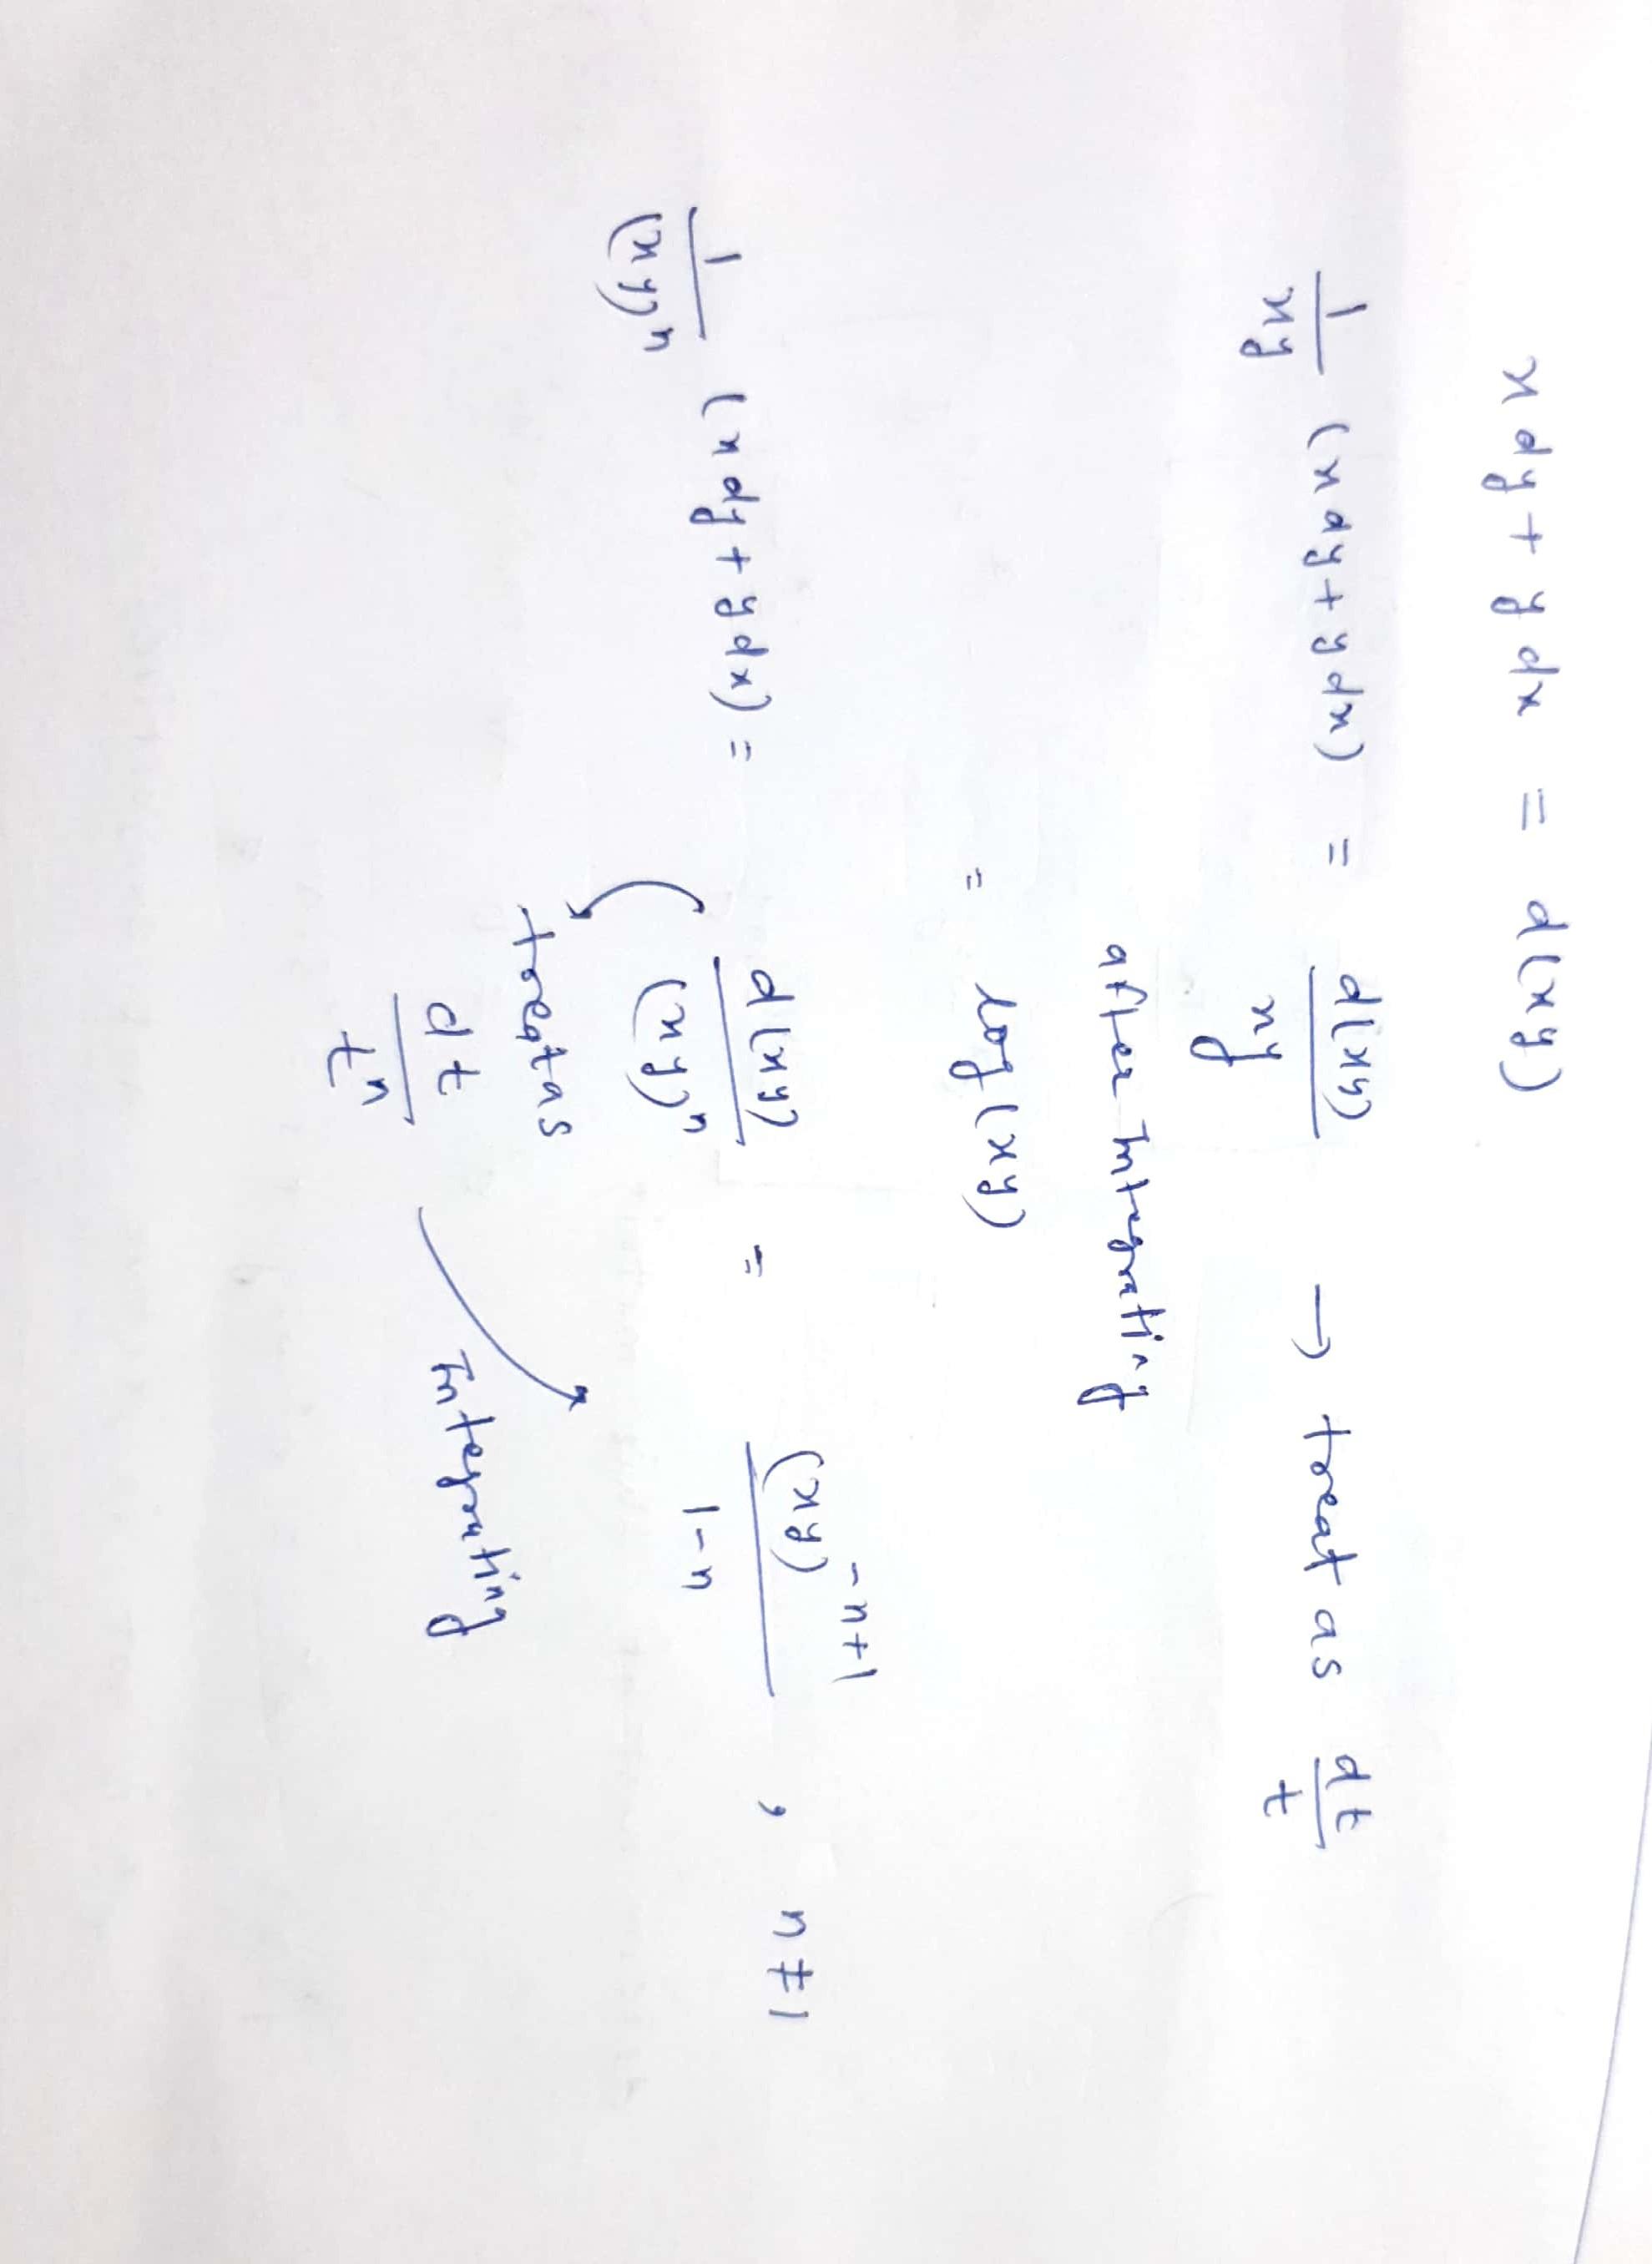 x dy + y dx = d(xy)
1/xy (x dy + y dx) = d(xy)/xy → treat as dt/t
after Integrating
= log(xy)
1/(xy)^n (x dy + y dx) = d(xy)/(xy)^n = (xy)^-n+1/1-n , n ≠ 1
treat as
dt/t^n Integrating